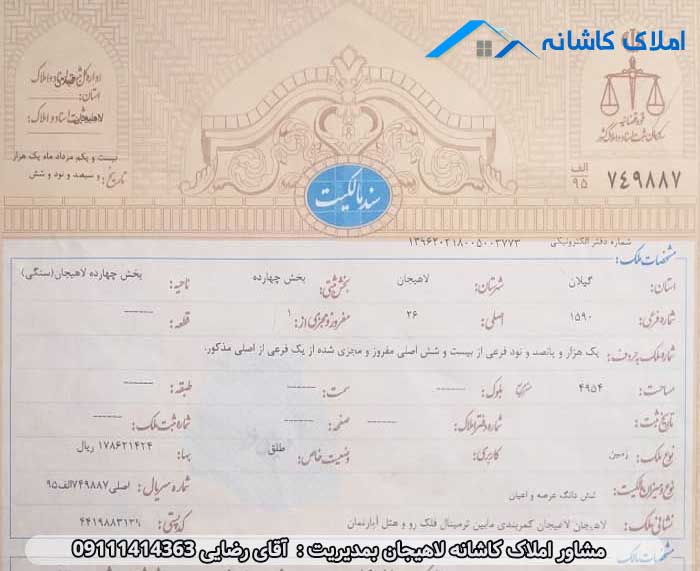 املاک کاشانه
قوه قضائیه
سازمان ثبت اسناد و املاک کشور
الف
۹۵
۷۴۹۸۸۷
استان:
لاهیجان
بیست و یکم مرداد ماه یک هزار
و سیصد و نود و شش
تاریخ:
سند مالکیت
شماره دفتر الکترونیکی ۱۳۹۶۲۰۲۱۸۰۰۵۰۰۳۷۷۳
مشخصات ملک:
استان: گیلان شهرستان: لاهیجان بخش ثبتی: بخش چهارده ناحیه: بخش چهارده لاهیجان(سنگی)
شماره فرعی: ۱۵۹۰ اصلی: ۲۶ مفروز و مجزی از: ۱ قطعه: ------
شماره ملک بحروف: یک هزار و پانصد و نود فرعی از بیست و شش اصلی مفروز و مجزی شده از یک فرعی از اصلی مذکور.
مساحت: ۴۹۵۴ مترمربع بلوک: ------ سمت: ------ طبقه: ------
تاریخ ثبت: شماره دفتر املاک: ------ صفحه: ------ شماره ثبت ملک: ------
نوع ملک: زمین کاربری: وضعیت خاص: طلق بهاء: ۱۷۸۶۲۱۴۲۴ ریال
نوع و میزان مالکیت: شش دانگ عرصه و اعیان شماره سریال: اصلی۷۴۹۸۸۷الف۹۵
نشانی ملک: لاهیجان لاهیجان کمربندی مابین ترمینال فلک رو و هتل آپارتمان کدپستی: ۴۴۱۹۸۸۳۱۳۹
مشاور املاک کاشانه لاهیجان بمدیریت : آقای رضایی 09111414363